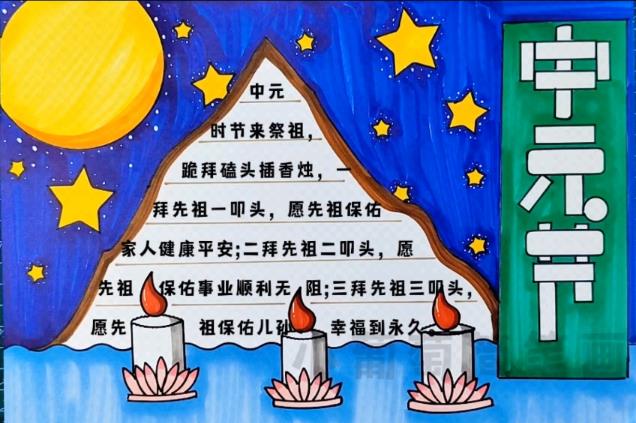 中元
时节来祭祖，
跪拜磕头插香烛，一
拜先祖一叩头，愿先祖保佑
家人健康平安;二拜先祖二叩头，愿
先祖保佑事业顺利无阻;三拜先祖三叩头，
愿先祖保佑儿孙幸福到永久
中元节